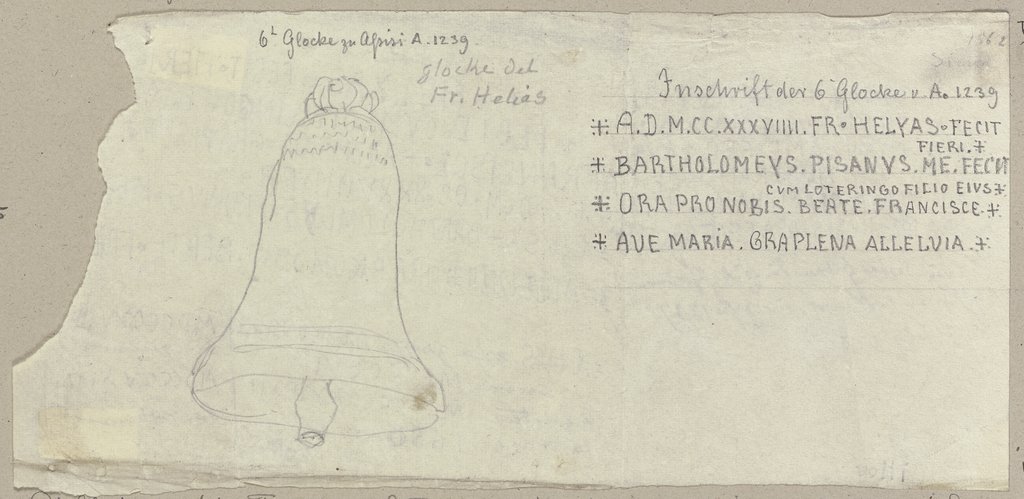 6ᵗ Glocke zu Assisi A. 1239.
glocke del
Fr. Helias
Inschrift der 6 Glocke v. A. 1239
⁜ A.D.M.CC.XXXVIIII. FR. HELYAS. FECIT
FIERI. ⁜
⁜ BARTHOLOMEVS. PISANVS. ME. FECIT
CVM LOTERINGO FILIO EIVS ⁜
⁜ ORA PRO NOBIS. BEATE. FRANCISCE. ⁜
⁜ AVE MARIA. GRAPLENA ALLELVIA. ⁜